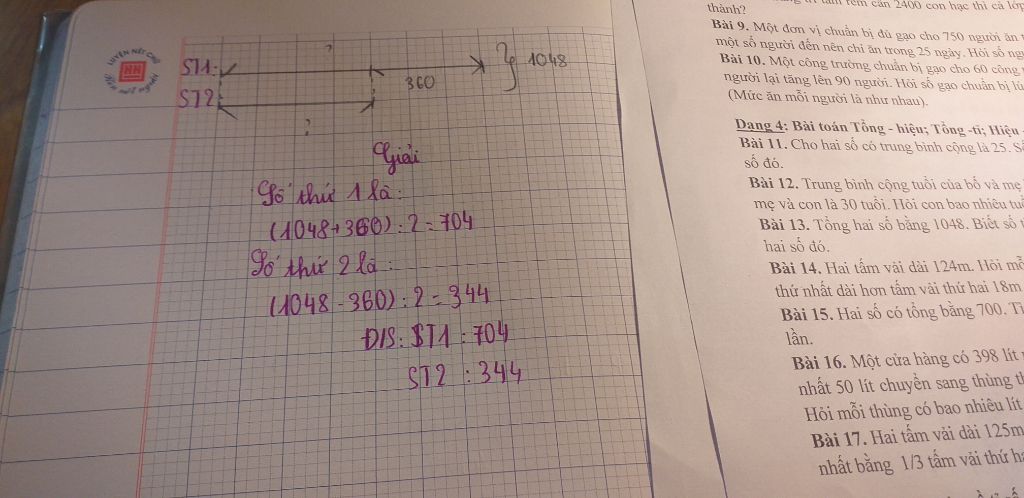 LUYỆN NÉT CHỮ
NN
Rèn nết người
?
ST1:
360
1048
ST2
?
Giải
Số thứ 1 là:
(1048+360):2=704
Số thứ 2 là:
(1048-360):2=344
Đ/S: ST1:704
ST2:344
cần 2400 con hạc thì cả lớp
thành?
Bài 9. Một đơn vị chuẩn bị đủ gạo cho 750 người ăn
một số người đến nên chỉ ăn trong 25 ngày. Hỏi số
Bài 10. Một công trường chuẩn bị gạo cho 60 công
người lại tăng lên 90 người. Hỏi số gạo chuẩn bị
(Mức ăn mỗi người là như nhau).
Dạng 4: Bài toán Tổng - hiệu; Tổng -tỉ; Hiệu
Bài 11. Cho hai số có trung bình cộng là 25.
số đó.
Bài 12. Trung bình cộng tuổi của bố và mẹ
mẹ và con là 30 tuổi. Hỏi con bao nhiêu
Bài 13. Tổng hai số bằng 1048. Biết số
hai số đó.
Bài 14. Hai tấm vải dài 124m. Hỏi
thứ nhất dài hơn tấm vải thứ hai 18m
Bài 15. Hai số có tổng bằng 700.
lần.
Bài 16. Một cửa hàng có 398 lít
nhất 50 lít chuyển sang thùng
Hỏi mỗi thùng có bao nhiêu lít
Bài 17. Hai tấm vải dài 125m
nhất bằng 1/3 tấm vải thứ